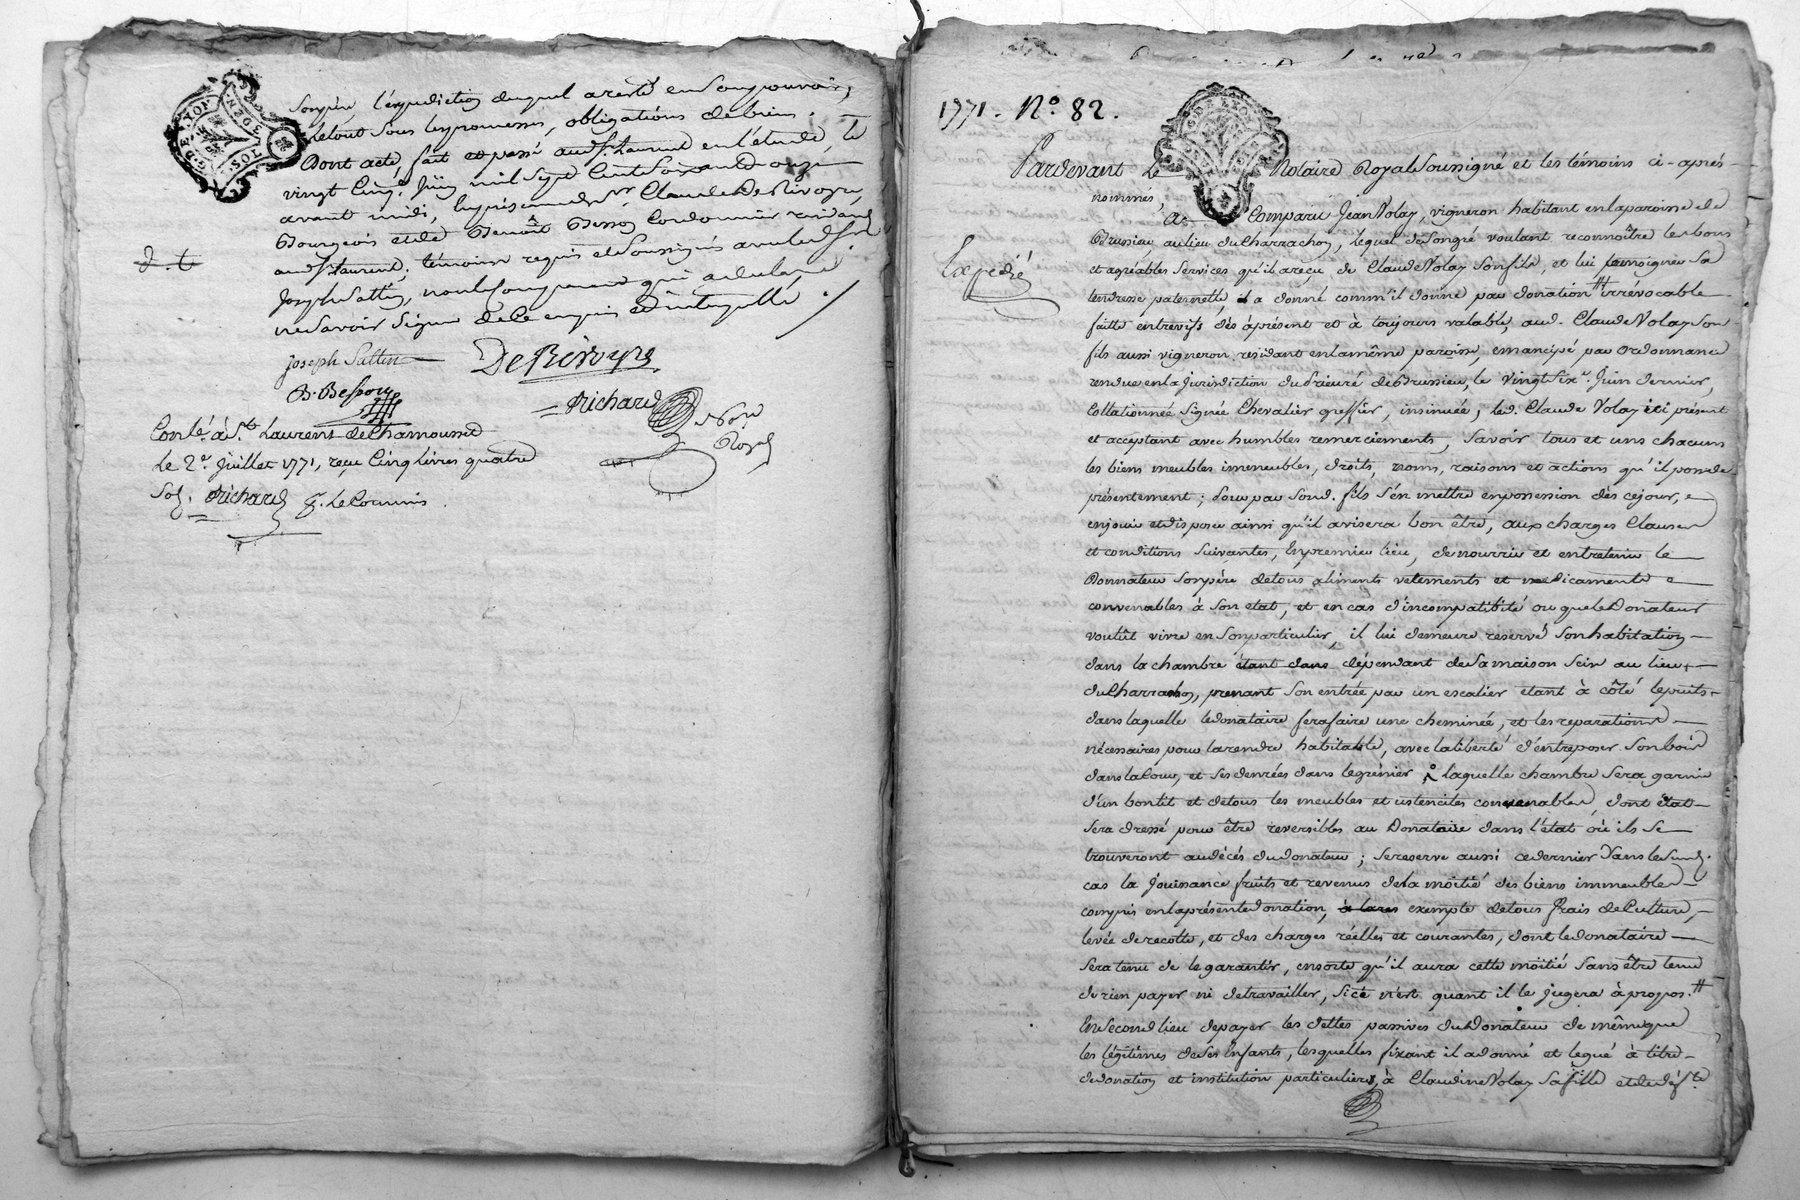 Son père l'expedition duquel a resté en son pouvoir,
le tout sous les promesses, obligations de biens.
Dont acte, fait et passé aud. St. Laurent en l'étude, le
vingt cinq.e Juin mil sept cent soixante onze
avant midi, en présence de Sr. Claude De Rivoyre,
Bourgeois et de Benoît Besson Cordonnier residants
aud. St. Laurent, témoins requis et soussignés avec led. Sr.
Joseph Sattin, non le comparant qui a déclaré
ne savoir signer de ce enquis et interpellé.
Joseph Sattin
DeRivoyre
B. Besson
Richard
Not.re
Royal
Conlé. à St. Laurent de Chamousset
le 2.e Juillet 1771, reçu Cinq livres quatre
Sols. Richard p. le Commis.
1771. N.o 82.
Pardevant le Notaire Royal Soussigné et les témoins ci-après
nommés,
a Comparu Jean Volay, vigneron habitant en la paroisse de
Brussieu au lieu du Charrachon, lequel de son gré voulant reconnoître les bons
Expédié
et agréables services qu'il a reçu de Claude Volay son fils, et lui temoigner sa
tendresse paternelle, a donné comm'il donne par donation # irrévocable
faitte entrevifs dès àprésent et à toujours valable, aud. Claude Volay son
fils aussi vigneron, residant en la même paroisse, emancipé par ordonnance
rendue en la jurisdiction du Prieuré de Brussieu, le vingt six.e Juin dernier,
Collationnée signée Chevalier greffier, insinuée, led. Claude Volay ici présent
et acceptant avec humbles remerciements, Savoir tous et uns chacuns
les biens meubles immeubles, droits, noms, raisons et actions qu'il possede
présentement; pour par sond. fils s'en mettre en possession dès ce jour,
en jouir et disposer ainsi qu'il avisera bon être, aux charges Clauses
et conditions suivantes, En premier lieu, de nourrir et entretenir le
Donnateur son père de tous aliments vetements et medicaments
convenables à son etat, et en cas d'incompatibité ou que le Donateur
voulût vivre en son particulier, il lui demeure reservé son habitation
dans la chambre étant dans dépendant de sa maison size au lieu
du Charrachon, prenant son entrée par un escalier etant à côté le puits
dans laquelle le donataire fera faire une cheminée, et les reparations
nécessaires pour la rendre habitable, avec la liberté d'entreposer son bois
dans la Cour, et ses denrées dans le grénier, laquelle chambre sera garnie
d'un bon lit et de tous les meubles et ustenciles convenables dont état
sera dressé pour être reversibles au Donataire dans l'état où ils se
trouveront au décés du donateur; se reserve aussi ce dernier dans le sud.
cas la jouissance fruits et revenus de la moitié des biens immeubles
compris en la présente donation, exempte de tous frais de Culture,
levée de recolte, et des charges réelles et courantes, dont le donataire
sera tenu de le garantir, ensorte qu'il aura cette moitié sans être tenu
de rien payer ni de travailler, si ce n'est quant il le jugera à propos. #
En second lieu de payer les dettes passives du Donateur de même que
les légitimes de ses Enfants, lesquelles fixant il a donné et legué à titre
de donation et institution particuliere, à Claudine Volay sa fille et de déf.te